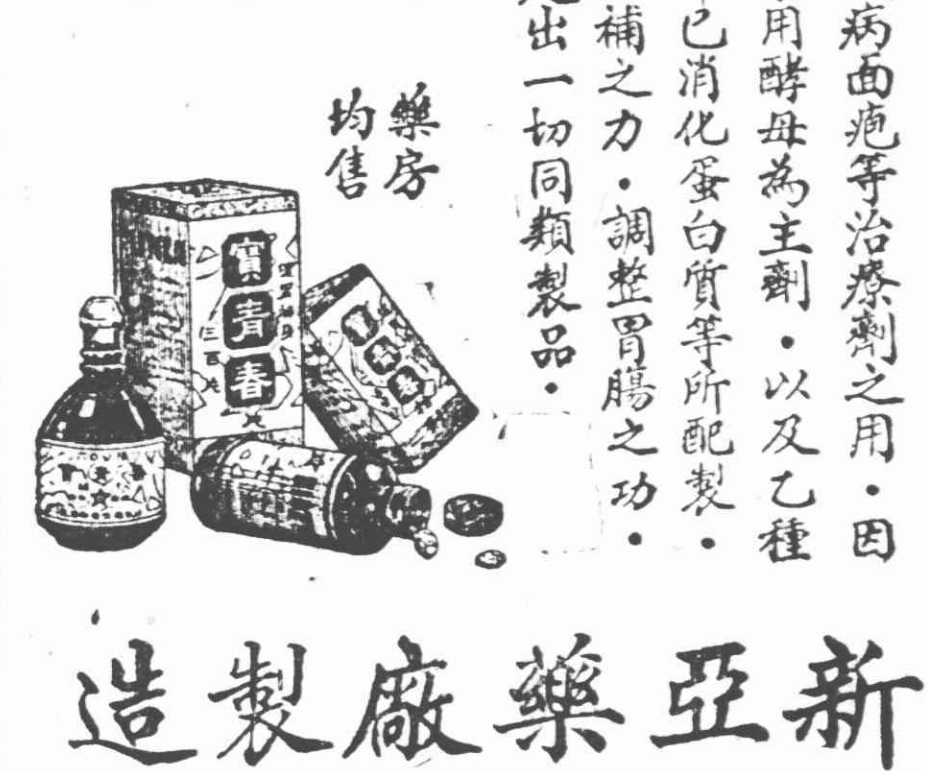 病面疱等治療劑之用・因
用酵母為主劑・以及乙種
已消化蛋白質等所配製・
補之力・調整胃腸之功・
出一切同類製品・
藥房
均售
寶青春
寶青春
新亞藥廠製造